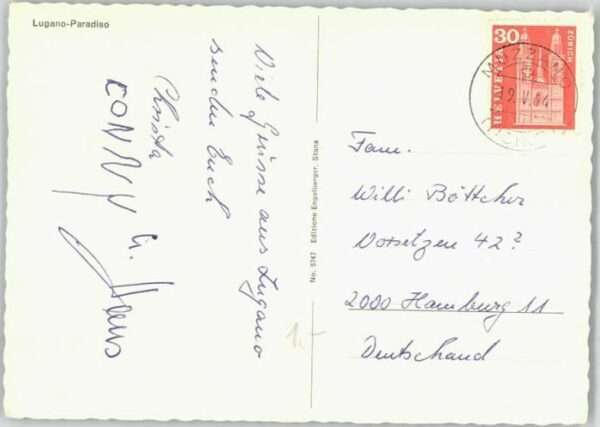 Lugano-Paradiso
Viele Grüsse aus Lugano
senden Euch
Christa
CONNY u.
Hans
No. 5747 Edizione Engelberger, Stans
30
HELVETIA
ZÜRICH
9.V.64
Fam.
Willi Böttcher
Vorsetzen 42?
2000 Hamburg 11
Deutschand
1,-